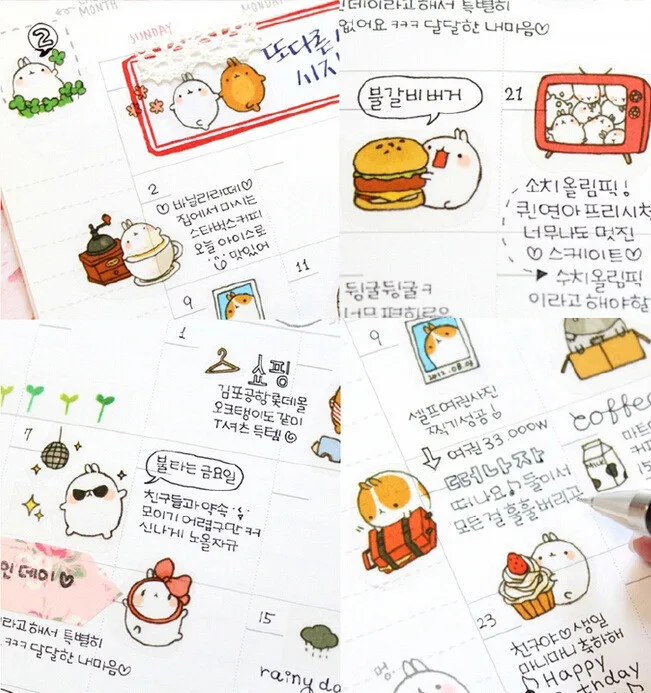 MONTH
SUNDAY
2
또다른
2
♡ 바닐라라떼 ♡
집에서 마시는
스타벅스커피
오늘 아이스로
맛있어
11
9
데이라고해서 특별히
없어요 ㅋㅋㅋ 달달한 내마음♡
불갈비버거
21
소치올림픽!
퀸연아 프리시
너무나도 멋진
♡ 스케이트 ♡
수치올림픽
이라고해야할
뒹굴뒹굴ㅋ
너무 편하로운
1
쇼핑
김포공항롯데몰
오크탱이도같이
T셔츠 득템
7
불라는금요일
친구들과약속
모이기 어렵구만 ㅋㅋ
신나게 노올자규
인데이♡
라고해서 특별히
ㅋㅋㅋ 달달한 내마음♡
15
rainy da
9
2012.08.03
셀프여권사진
찍기성공!
여권 33.000W
떠나자
떠나요♪ 둘이서
모든걸 훌훌버리고
coffee
마트
커피
MILK
15
23
친구야♡ 생일
마니마니축하해
Happy
thday
멍